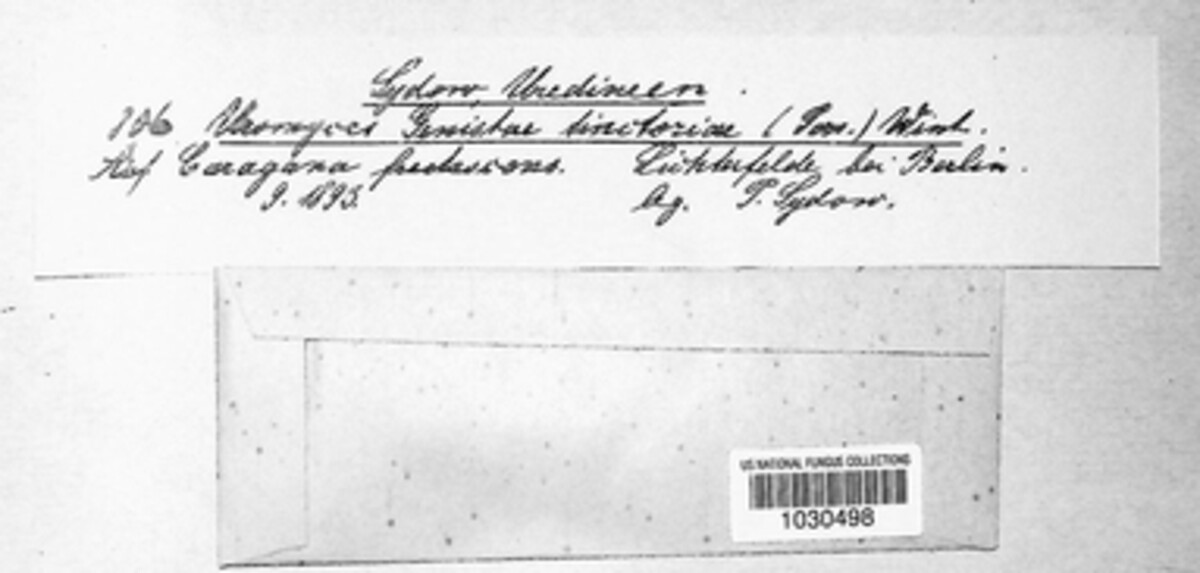 Sydow, Uredineen.
706 Uromyces Genistae tinctoriae (Pers.) Wint.
Auf Caragana frutescens. Lichterfelde bei Berlin.
9. 1893. lg. P. Sydow.
US NATIONAL FUNGUS COLLECTIONS
1030498